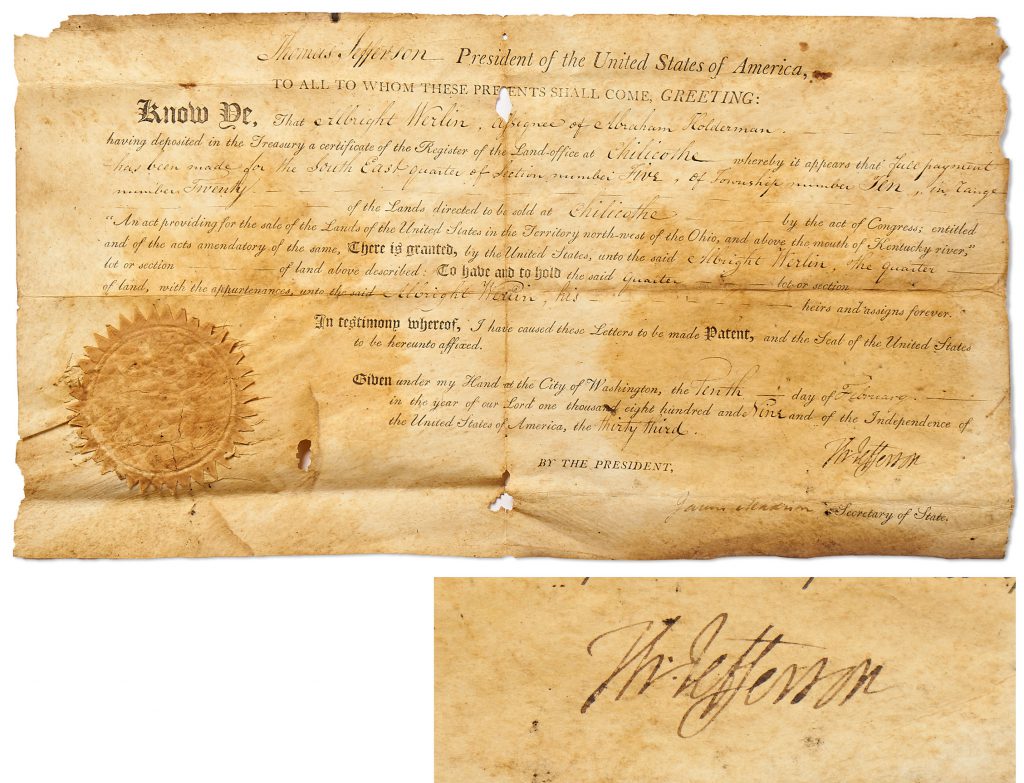 Thomas Jefferson President of the United States of America,
TO ALL TO WHOM THESE PRESENTS SHALL COME, GREETING:
Know Ye, That Albright Werlin, assignee of Abraham Holderman.
having deposited in the Treasury a certificate of the Register of the Land-office at Chilicothe whereby it appears that full payment
has been made for the South East quarter of Section number Five, of Township number Ten, in range
number Twenty. of the Lands directed to be sold at Chilicothe by the act of Congress; entitled
"An act providing for the sale of the Lands of the United States in the Territory north-west of the Ohio, and above the mouth of Kentucky river,"
and of the acts amendatory of the same, There is granted, by the United States, unto the said Albright Werlin, the quarter
lot or section of land above described: To have and to hold the said quarter lot or section
of land, with the appurtenances, unto the said Albright Werlin, his heirs and assigns forever.
In testimony whereof, I have caused these Letters to be made Patent, and the Seal of the United States
to be hereunto affixed.
Given under my Hand at the City of Washington, the Tenth day of February
in the year of our Lord one thousand eight hundred and Nine and of the Independence of
the United States of America, the thirty third.
Th: Jefferson
BY THE PRESIDENT,
James Madison Secretary of State.
Th: Jefferson